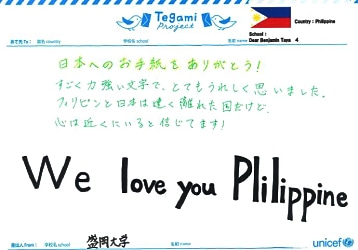 Tegami
Project
Country : Philippine
School :
Dear Benjamin Tara 4
あて先 To : 国名 country 学校名 school 名前 name
日本へのお手紙をありがとう!
すごく力強い文字で、とてもうれしく思いました。
フィリピンと日本は遠く離れた国だけど、
心は近くにいると信じてます!
We love you Plilippine
差出人 From : 学校名 school 盛岡大学 名前 name unicef